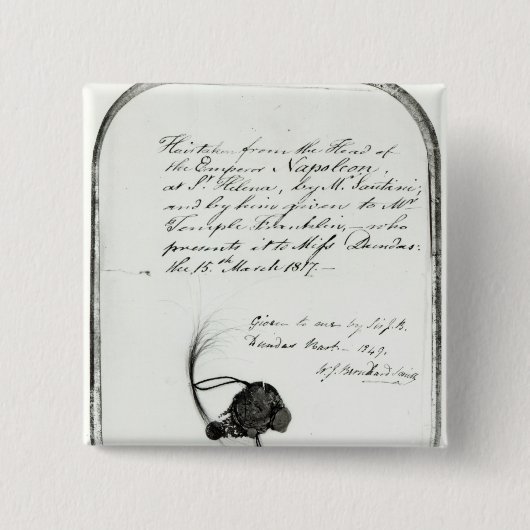 Hair taken from the Head of
the Emperor Napoleon,
at St. Helena, by M. Santini;
and by him given to Mr
Temple Franklin, – who
presents it to Miss Dundas:
the 15.th March 1817. –
Given to me by Sir J. B.
Dundas Bart – 1849.
W. J.